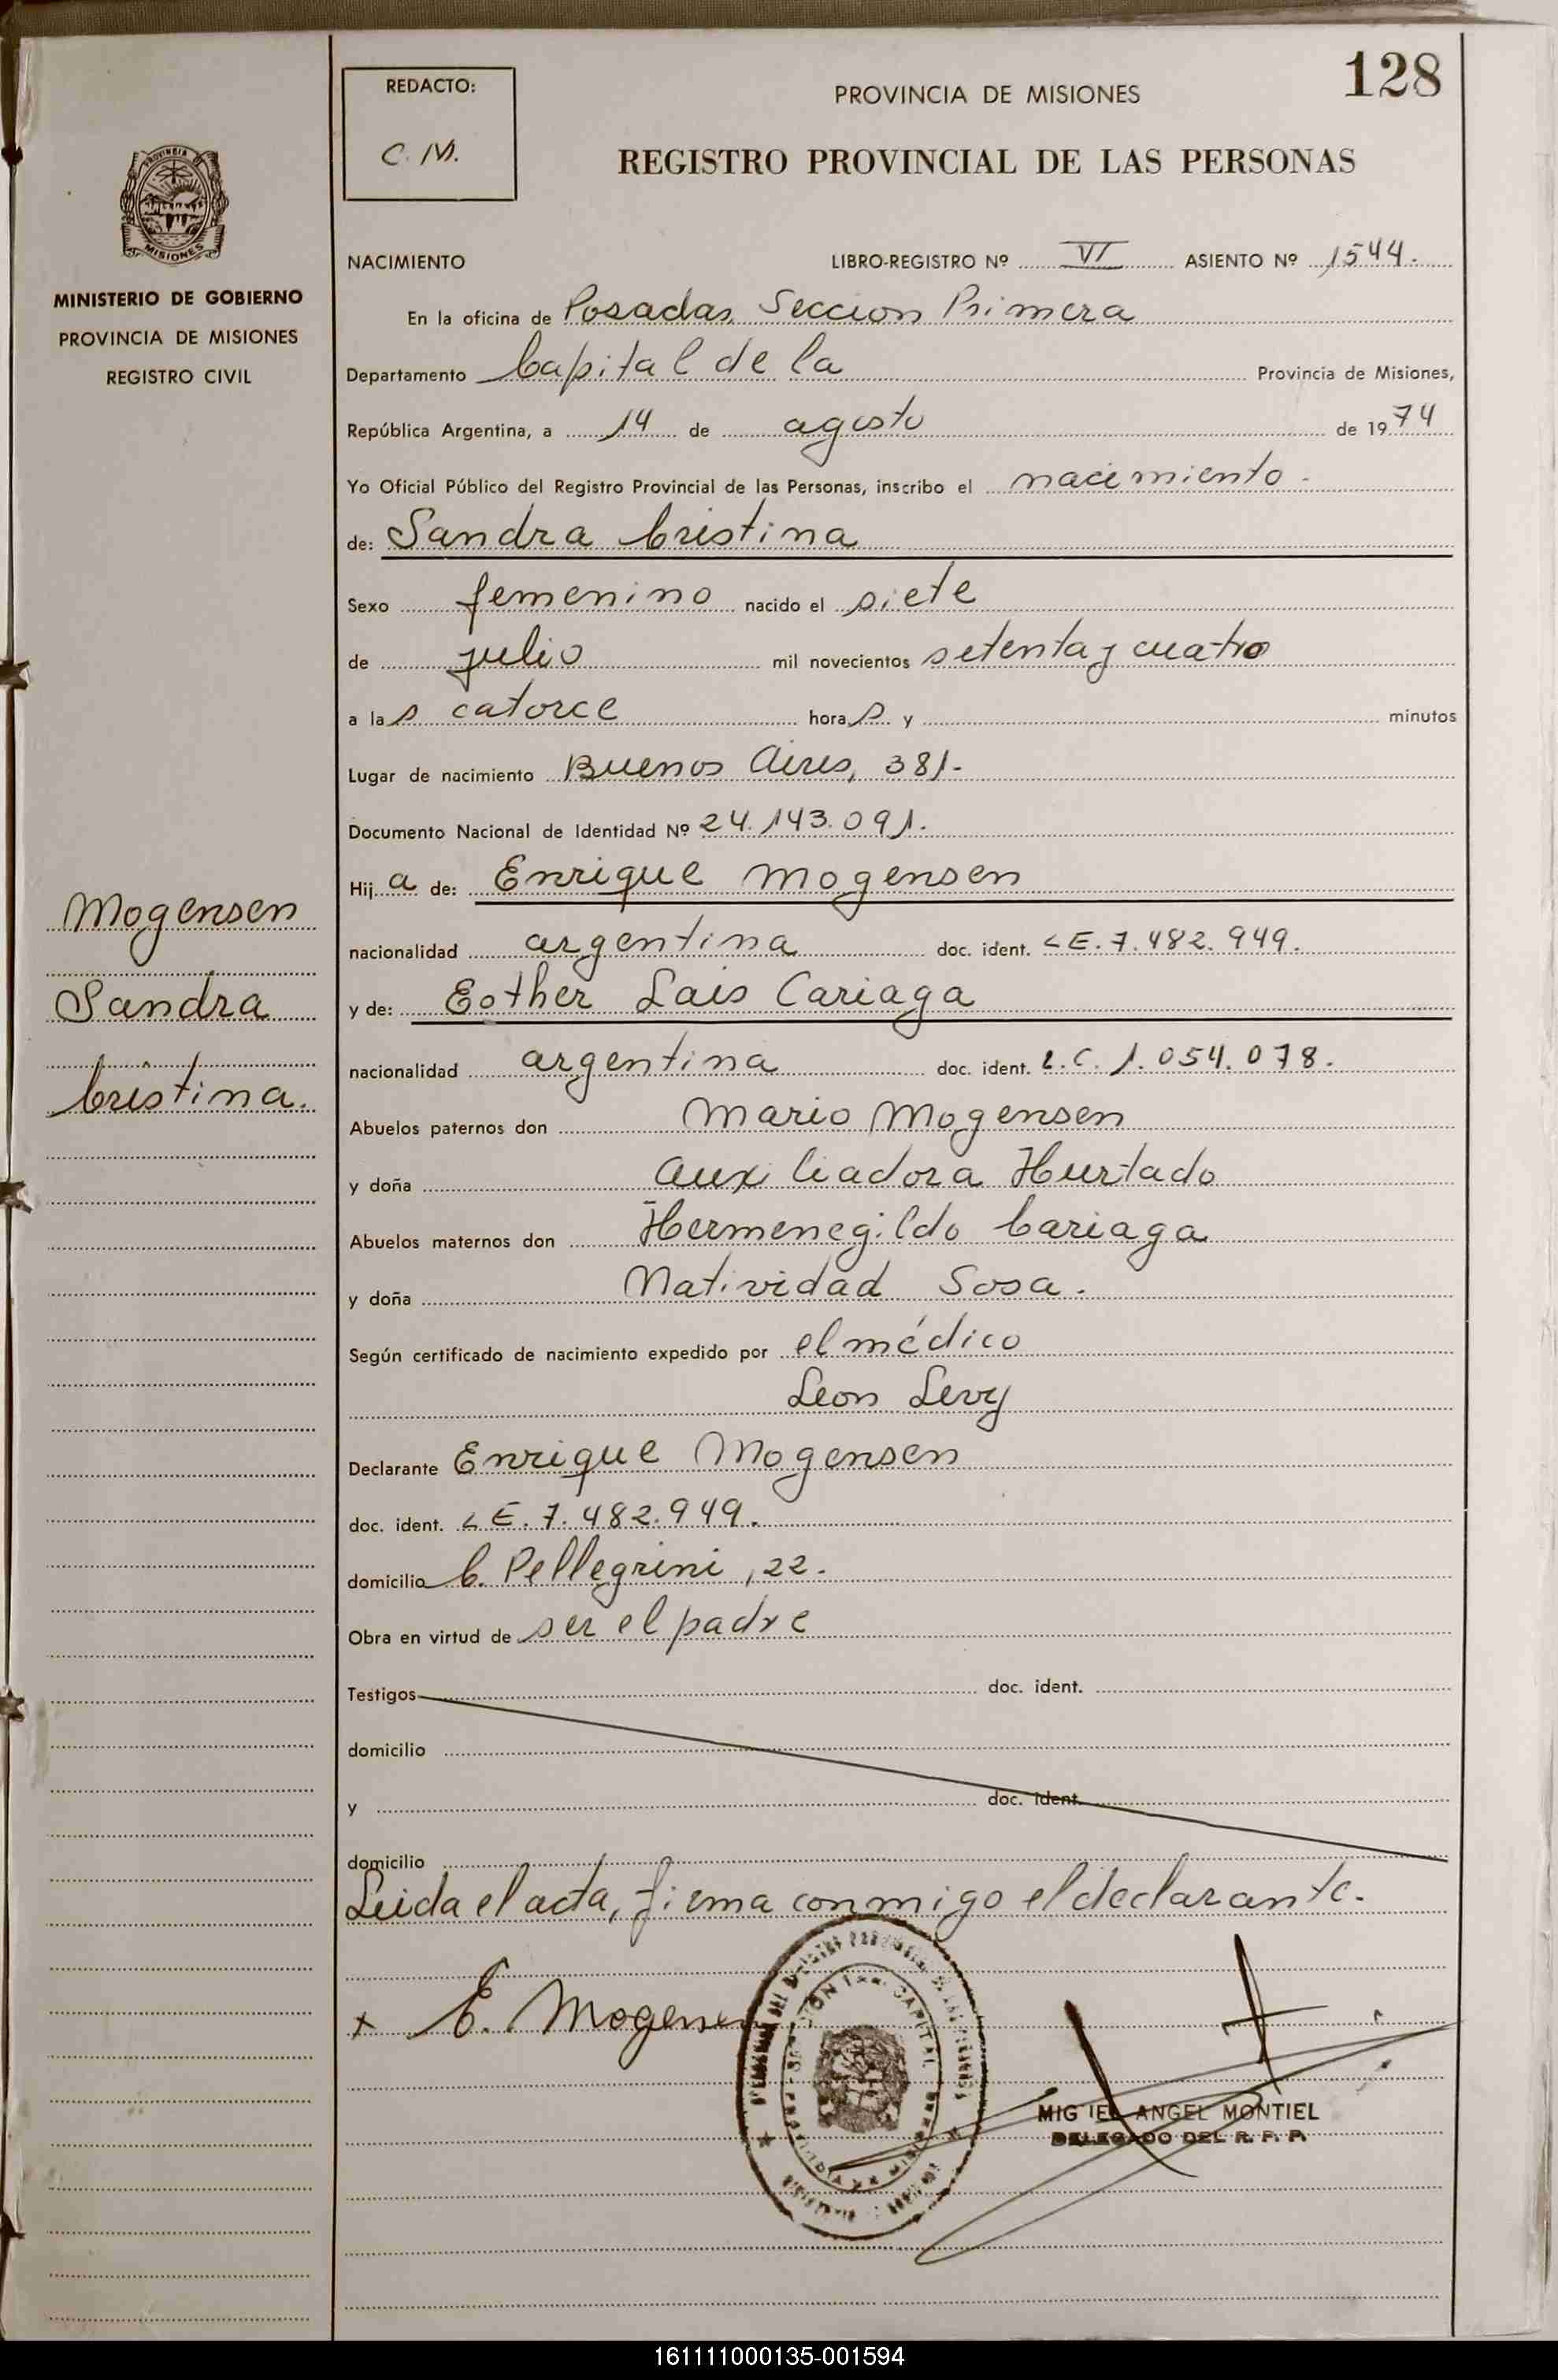 128
REDACTO:
C. M.
PROVINCIA DE MISIONES
REGISTRO PROVINCIAL DE LAS PERSONAS
PROVINCIA
MISIONES
MINISTERIO DE GOBIERNO
PROVINCIA DE MISIONES
REGISTRO CIVIL
NACIMIENTO LIBRO-REGISTRO Nº VI ASIENTO Nº 1544.
En la oficina de Posadas, Seccion Primera
Departamento Capital de la Provincia de Misiones,
República Argentina, a 14 de agosto de 1974
Yo Oficial Público del Registro Provincial de las Personas, inscribo el nacimiento.
de: Sandra Cristina
Sexo femenino nacido el siete
de julio mil novecientos setenta y cuatro
a las catorce horas y minutos
Lugar de nacimiento Buenos Aires, 381.-
Documento Nacional de Identidad Nº 24.143.091.
Hija de: Enrique Mogensen
nacionalidad argentina doc. ident. LE. 7.482.949.
y de: Esther Lais Cariaga
nacionalidad argentina doc. ident. L.C. 1.054.078.
Abuelos paternos don Mario Mogensen
y doña Auxiliadora Hurtado
Abuelos maternos don Hermenegildo Cariaga
y doña Natividad Sosa.
Según certificado de nacimiento expedido por el médico
Leon Levy
Declarante Enrique Mogensen
doc. ident. LE. 7.482.949.
domicilio C. Pellegrini, 22.
Obra en virtud de ser el padre
Testigos doc. ident.
domicilio
y doc. ident.
domicilio
Leida el acta, firma conmigo el declarante.
x E. Mogensen
CAPITAL
MIGUEL ANGEL MONTIEL
DELEGADO DEL R. P. P.
Mogensen
Sandra
Cristina.
161111000135-001594